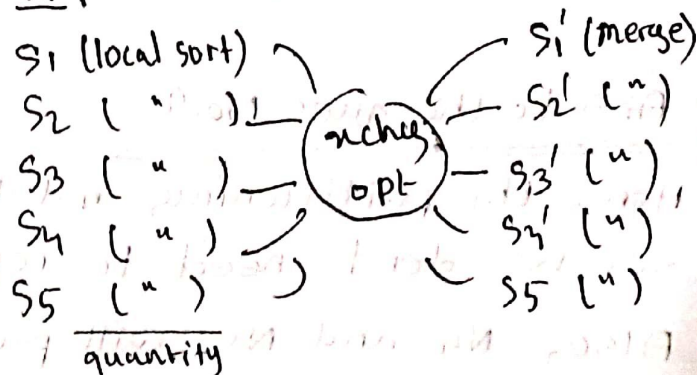 S1 (local sort)
S2 ( " )
S3 ( " )
S4 ( " )
S5 ( " )
quantity
xchg
opt
S1' (merge)
S2' (")
S3' (")
S4' (")
S5 (")